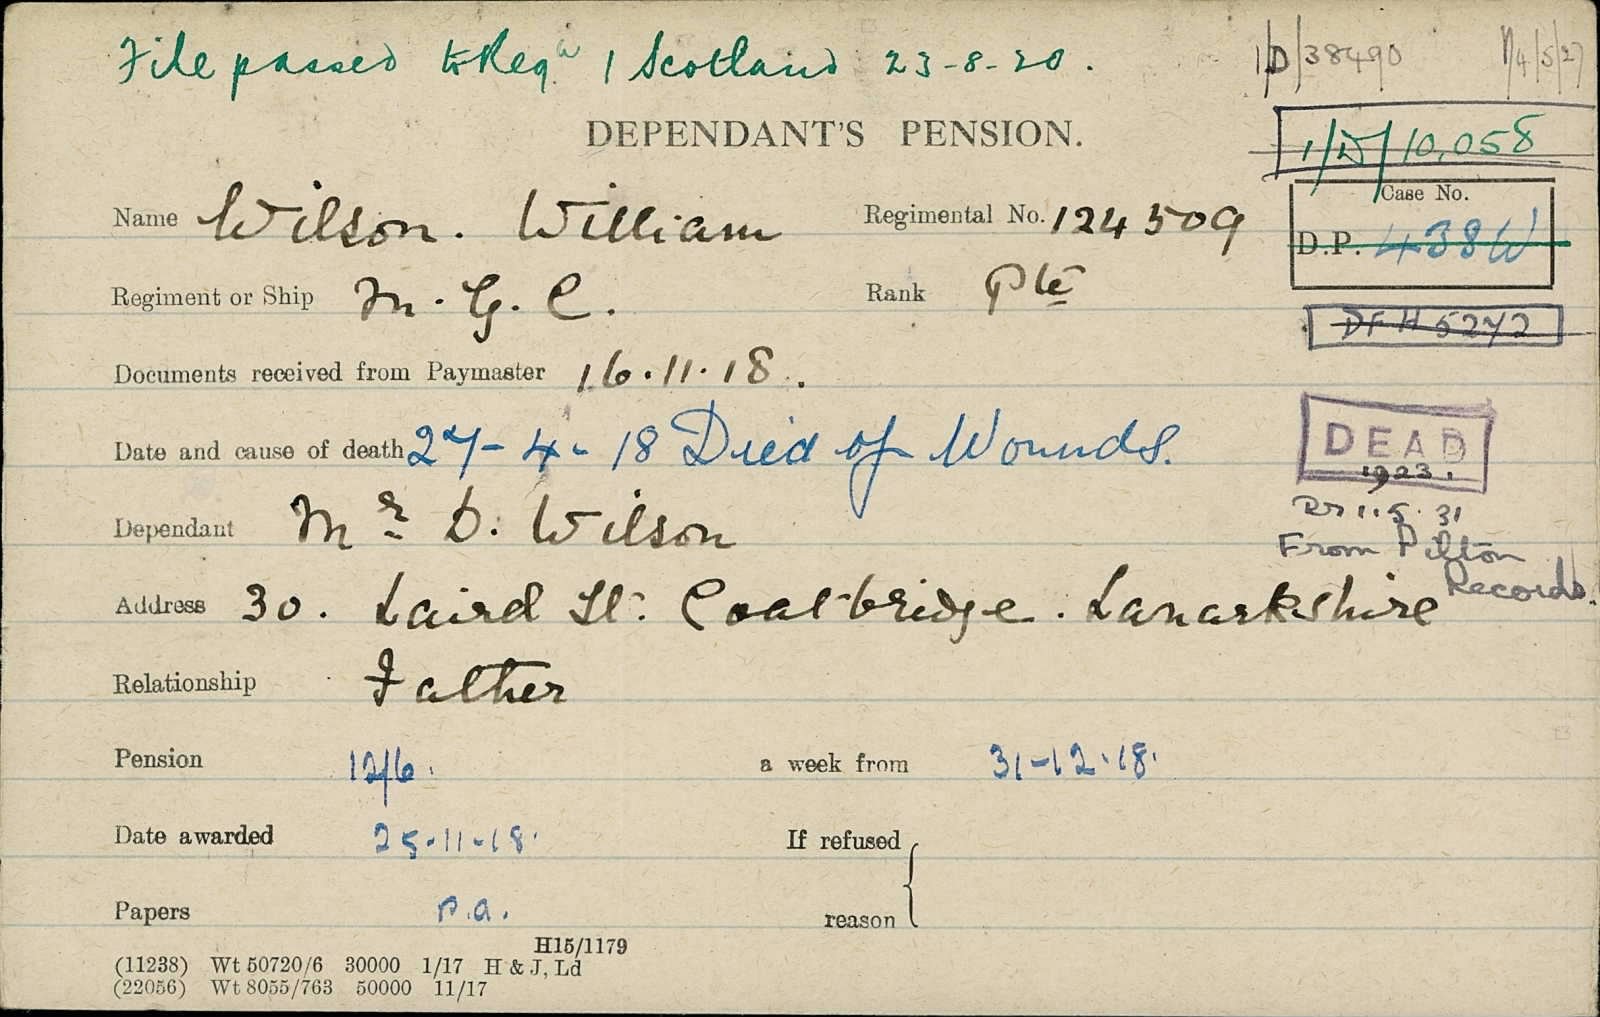 File passed to Regn 1 Scotland 23-8-20.
1/D/38490
1/4/5/27
DEPENDANT'S PENSION.
1/D/10,058
Name Wilson. William
Regimental No. 124509
Case No.
D.P. 438W
Regiment or Ship M.G.C.
Rank Pte
DFH 5272
Documents received from Paymaster 16.11.18.
Date and cause of death 27-4-18 Died of Wounds.
DEAD
1923.
Dependant Mr D. Wilson
1.5.31
From Pilton
Records.
Address 30. Laird St. Coatbridge. Lanarkshire
Relationship Father
Pension 12/6. a week from 31-12-18.
Date awarded 25-11-18.
If refused
reason
Papers P.a.
H15/1179
(11238) Wt 50720/6 30000 1/17 H & J, Ld
(22056) Wt 8055/763 50000 11/17